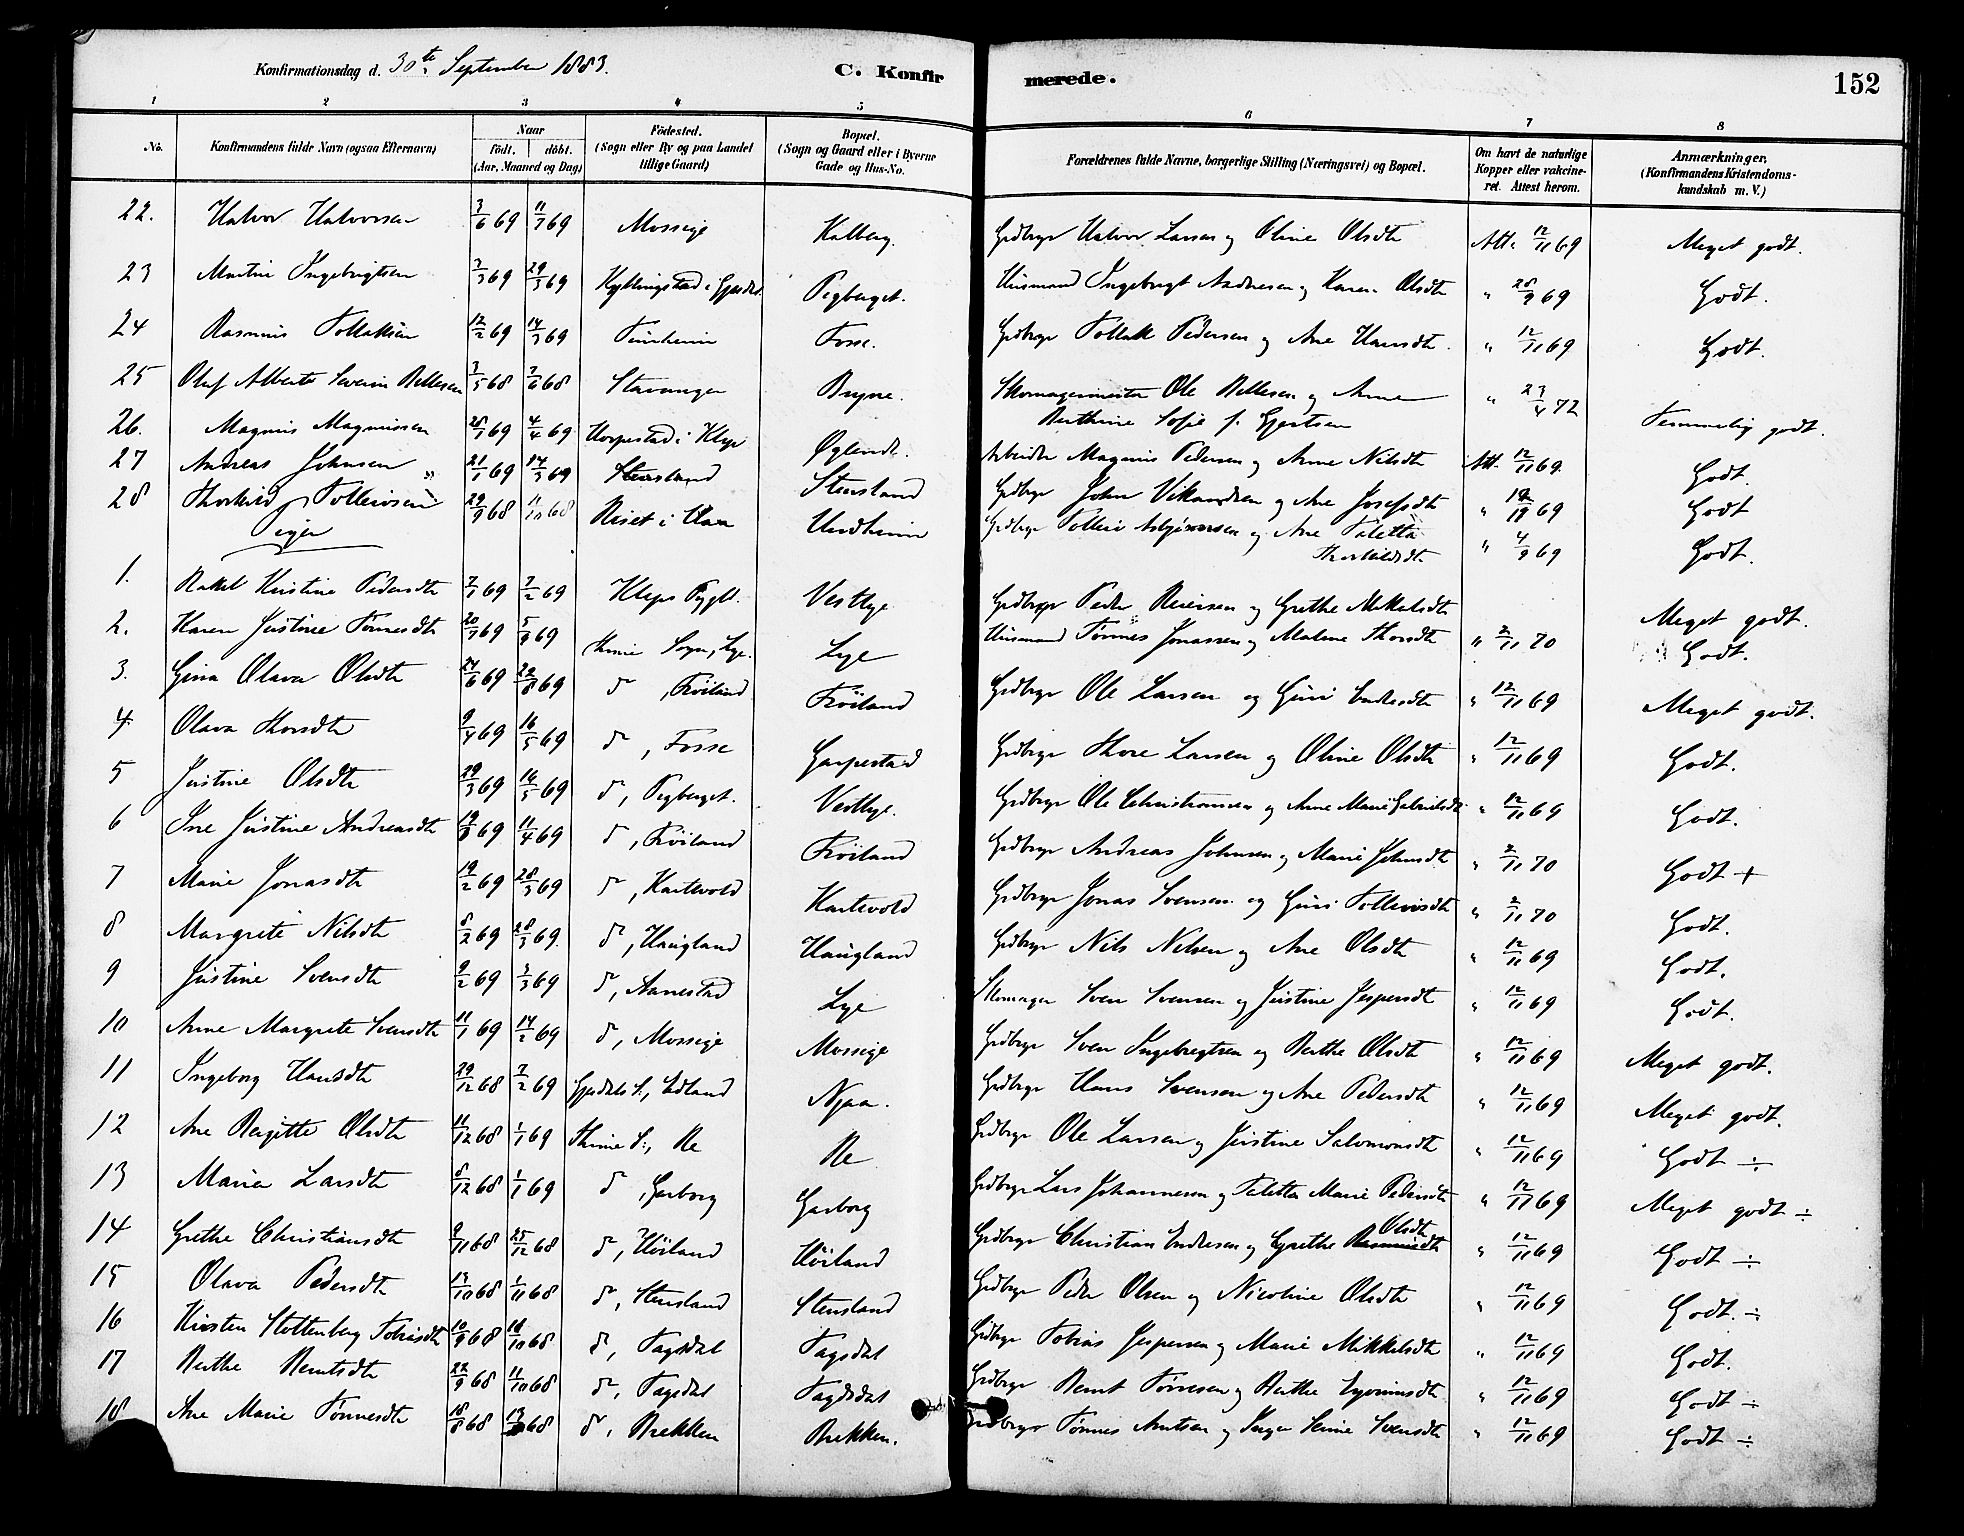 Konfirmationsdag d. 30te September 1883. C. Konfirmerede. 152
1 2 3 4 5 6 7 8
No. Konfirmandens fulde Navn (ogsaa Efternavn) Naar födt. döbt. (Aar, Maaned og Dag) Födested. (Sogn eller By og paa Landet tillige Gaard) Bopæl. (Sogn og Gaard eller i Byerne Gade og Hus-No. Forældrenes fulde Navne, borgerlige Stilling (Næringsvei) og Bopæl. Om havt de naturlige Kopper eller vakcineret. Attest herom. Anmærkninger. (Konfirmandens Kristendomskundskab m. V.)
22. Halvor Halvorsen 3/6 69 11/7 69 Mossige Kalberg. Grdbrgr Halvor Larsen og Oline Olsdtr Att. 12/11 69 Meget godt.
23 Martin Ingebrigtsen 7/3 69 29/3 69 Kyllingstad i Gjesdal Tegberget. Husmand Ingebrigt Andresen og Karen Olsdtr " 28/9 69 Godt.
24 Rasmus Tollaksen 12/2 69 14/3 69 Fosse. Grdbrgr Tollak Pedersen og Ane Hansdtr. " 12/11 69 Godt.
25 Oluf Alberts Severin Bellesen 7/5 68 7/6 68 Stavanger Bryne. Skomagermester Ole Bellesen og Anne Berthine Sofie f. Gjertsen " 23/4 72 Temmelig godt.
26. Magnus Magnussen 28/1 69 4/4 69 Horpestad i Klep Øglend. Arbeider Magnus Pedersen og Anne Nilsdtr Att. 12/11 69. Godt.
27 Andreas Johnsen 21/1 69 14/3 69 Stensland Stensland Grdbrgr John Vikandsen og Ane Josefsdtr " 12/11 69 Godt
28 Thorkild Tollevsen 29/9 68 11/10 68 Riset i Haa Undheim Grdbrgr Tollev Asbjörnsen og Ane Taletta Thorkildsdtr " 4/9 69 Godt.
Piger
1. Rakel Kristine Pedersdtr 7/1 69 7/2 69 Kleps Prgld. Vestlye Grdbrgr Peder Reiersen og Grethe Mikkelsdtr Meget godt.
2. Karen Justine Tönnesdtr 20/7 69 5/9 69 Thime Sogn, Lye. Lye Husmand Tönnes Jonassen og Malene Thorsdtr " 2/11 70 Godt.
3. Gina Olava Olsdtr 24/6 69 22/8 69 do, Fröiland Fröiland Grdbrgr Ole Larsen og Guri Endresdtr " 12/11 69 Meget godt.
4. Olava Thorsdtr 9/4 69 16/5 69 do, Fosse Garpestad Grdbrgr Thore Larsen og Oline Olsdtr " 12/11 69 Godt.
5 Justine Olsdtr 29/3 69 16/5 69 do, Tegberget. Vestlye. Grdbrgr Ole Christiansen og Anne Marie Gabrielsdtr " 12/11 69 Godt.
6 Ine Justine Andreasdtr 19/3 69 11/4 69 do, Fröiland Fröiland Grdbrgr Andreas Johnsen og Marie Johnsdtr " 2/11 70 Godt +
7 Marie Jonasdtr 19/2 69 28/3 69 do, Kartevold Kartevold Grdbrgr Jonas Svensen og Guri Tollevsdtr " 2/11 70 Godt.
8 Margrete Nilsdtr 8/2 69 28/3 69. do, Haugland Haugland Grdbrgr Nils Nilsen og Ane Olsdtr " 12/11 69 Godt.
9 Justine Svensdtr 9/2 69 7/3 69 do, Aanestad Lye Skomager Sven Svensen og Justine Jespersdtr " 12/11 69 Godt.
10 Anne Margrete Svensdtr 11/1 69 14/2 69 do, Mossige Mossige Grdbrgr Sven Ingebregtsen og Berthe Olsdtr " 12/11 69 Meget godt.
11 Ingeborg Hansdtr 29/12 68 7/2 69 Gjesdals S., Edland Njaa. Grdbrgr Hans Svensen og Ane Pedersdtr " 12/11 69 Meget godt.
12 Ane Bergitte Olsdtr 11/12 68 1/1 69 Thime S., Re Re Grdbrgr Ole Larsen og Justine Salomonsdtr " 12/11 69 Godt ÷
13 Maria Larsdtr 8/12 68 1/1 69 do, Garborg Garborg Grdbrgr Lars Johannesen og Taletta Marie Pedersdtr " 12/11 69 Meget godt ÷
14 Grethe Christiansdtr 9/11 68 25/12 68 do, Höiland Höiland Grdbrgr Christian Endresen og Grethe Olsdtr " 12/11 69 Godt ÷
15 Olava Pedersdtr 13/10 68 1/11 68 do, Stensland Stensland Grdbrgr Peder Olsen og Nicoline Olsdtr " 12/11 69 Godt. ÷
16 Kirsten Stoltenberg Tobiasdtr 10/9 68 18/10 68 do, Tagsdal Tagsdal Grdbrgr Tobias Jespersen og Marie Mikkelsdtr " 12/11 69 Godt.
17 Berthe Berntsdtr 22/9 68 11/10 68 do, Tagsdal Tagsdal Grdbrgr Bernt Törresen og Berthe " 12/11 69 Godt ÷
18 Ane Marie Tönnesdtr 18/8 68 13/9 68 do, Brekken Brekken. Grdbrgr Tönnes Arntsen og Svensdtr " 12/11 69 Godt ÷